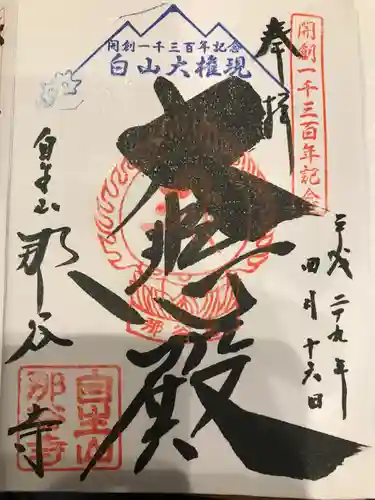 開創一千三百年記念
白山大権現
開創一千三百年記念
奉拝
大悲殿
平成二十九年
四月十六日
自生山
那谷寺
自生山
那谷寺